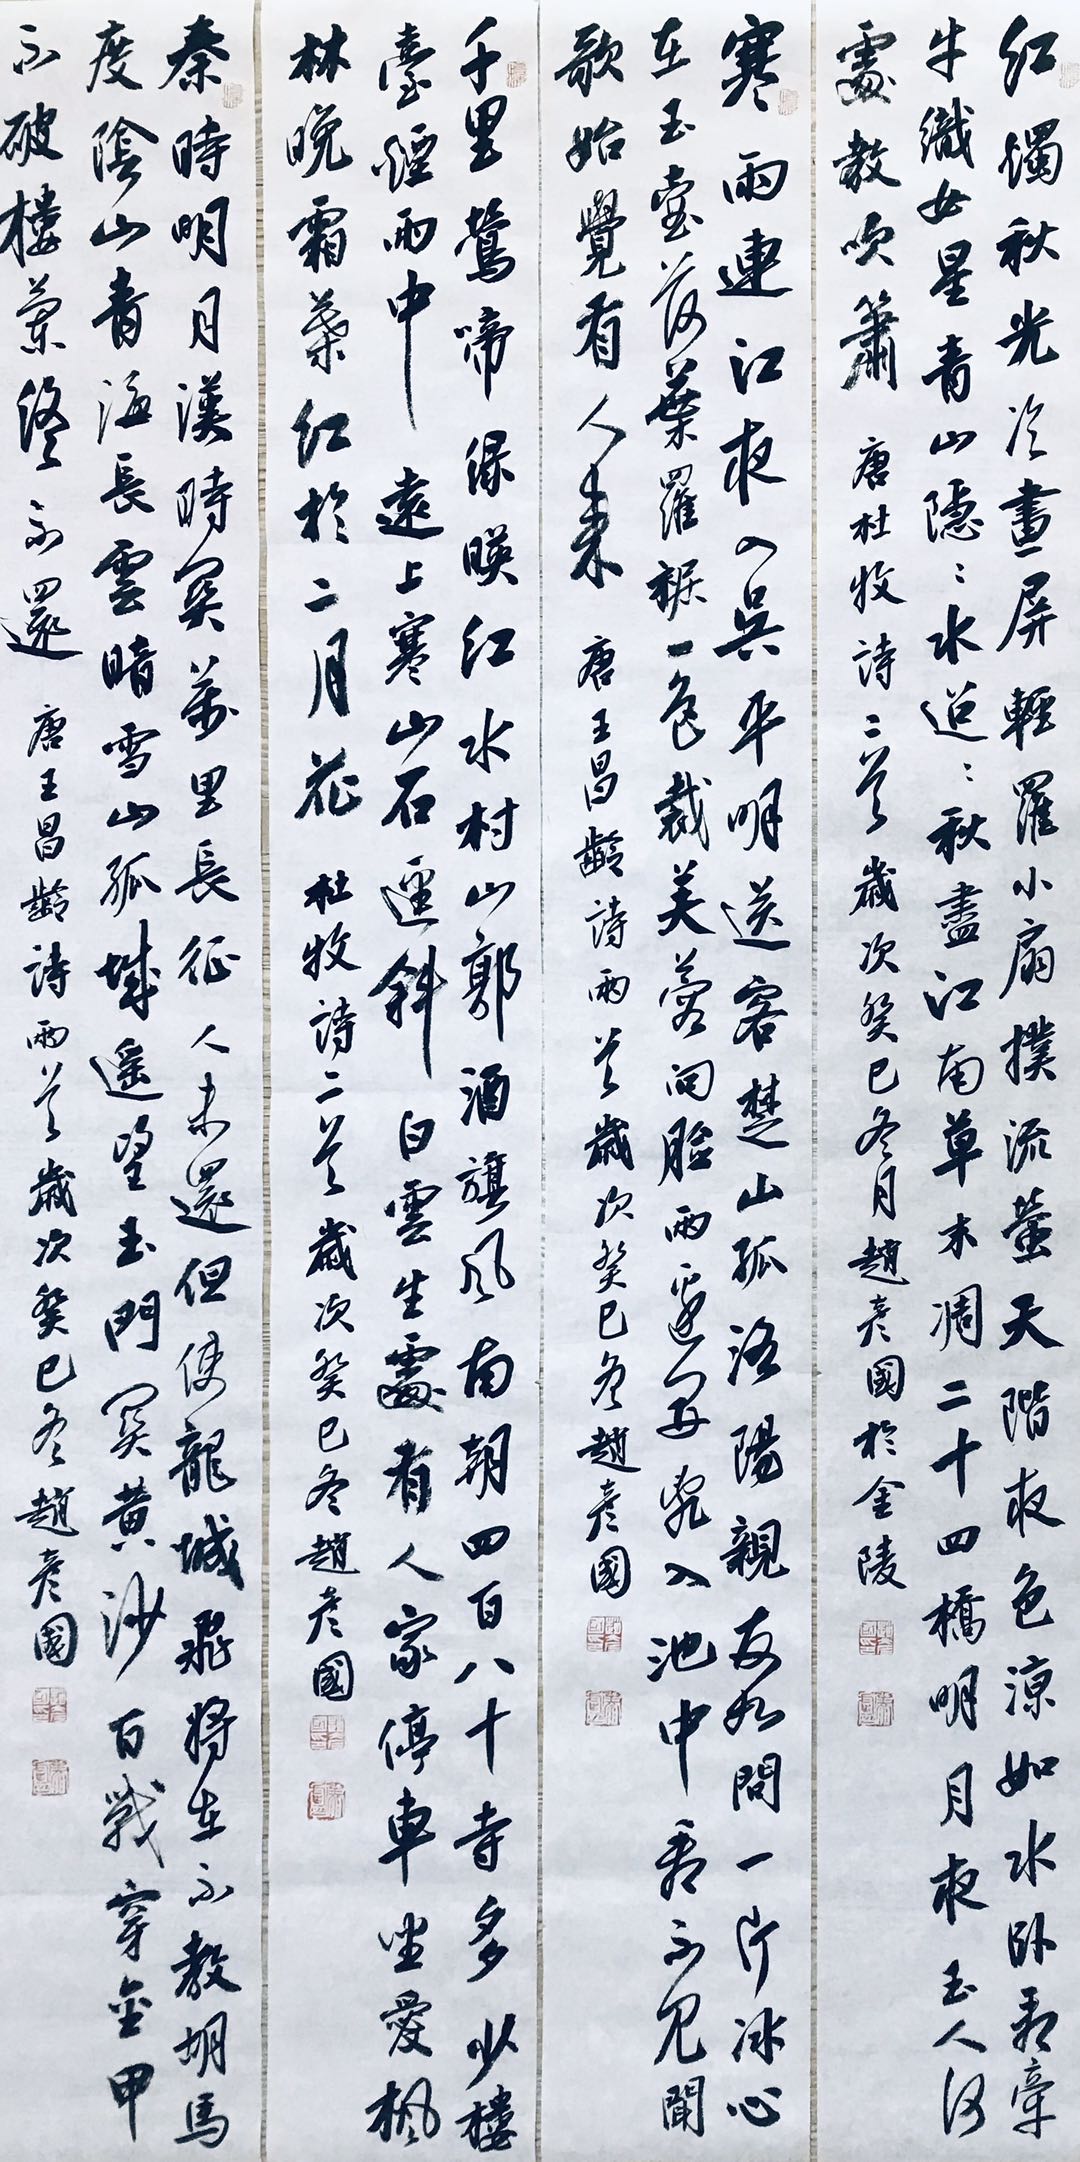 红燭秋光冷畫屏輕羅小扇撲流螢天階夜色涼如水卧看牽
牛織女星青山隱:水迢:秋盡江南草木凋二十四橋明月夜玉人何
處教吹簫 唐杜牧詩二首歲次癸巳冬月趙彥國於金陵
寒雨連江夜入吴平明送客楚山孤洛陽親友如問一片冰心
在玉壺荷葉羅裾一色裁芙蓉向臉兩邊開亂入池中看不見聞
歌始覺有人来 唐王昌齡詩兩首歲次癸巳冬趙彥國
千里鶯啼绿暎红水村山郭酒旗风南朝四百八十寺多少樓
臺煙雨中 遠上寒山石逕斜 白雲生處有人家停車坐愛楓
林晚霜葉红於二月花 杜牧詩二首歲次癸巳冬趙彥國
秦時明月漢時関萬里長征人未還但使龍城飛将在不教胡馬
度陰山青海長雲暗雪山孤城遥望玉門関黄沙百戰穿金甲
不破樓蘭終不還 唐王昌齡詩兩首歲次癸巳冬趙彥國